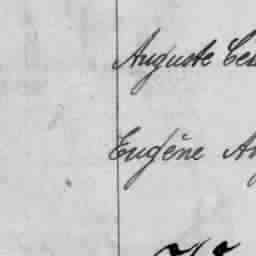 Auguste Ces
Eugène Au